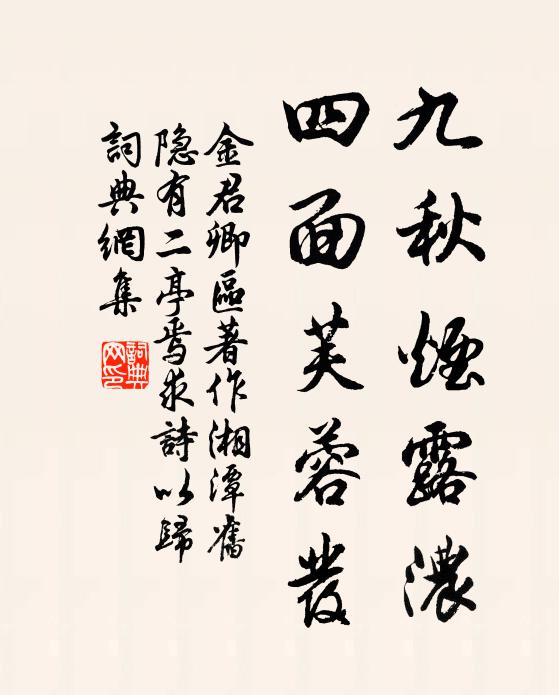 九秋煙露濃
四面芙蓉發
金君卿區著作湘潭舊
隐有二亭焉求詩以歸
詞典網集
詞典
网印